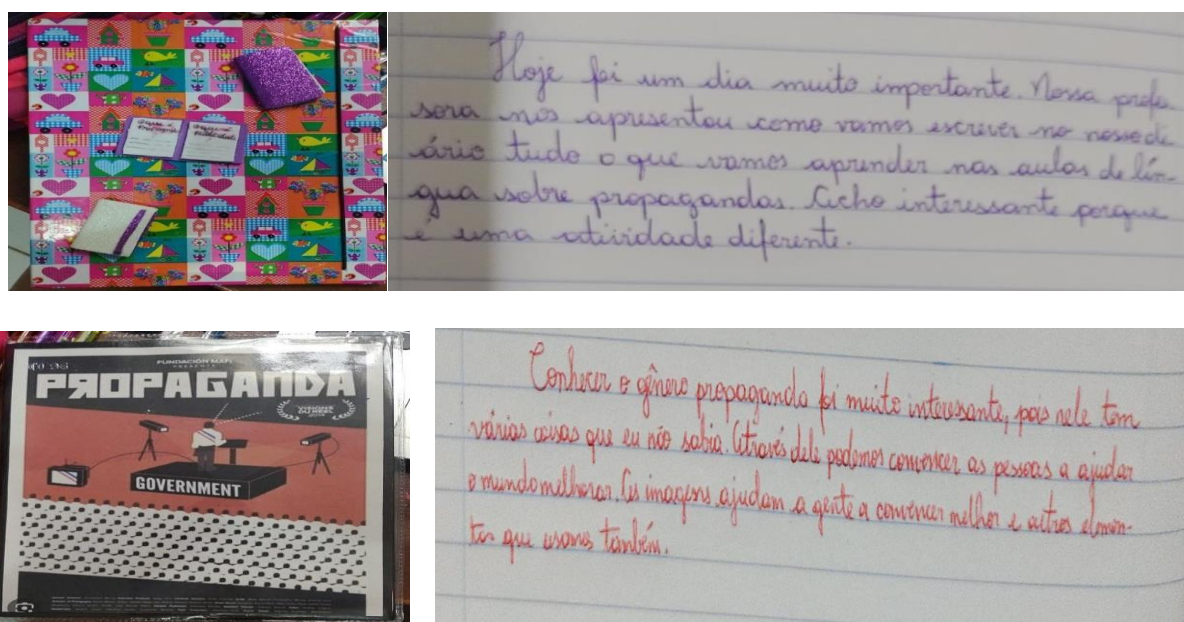 Hoje foi um dia muito importante. Nossa profes
sora nos apresentou como vamos escrever no nosso di
ário tudo o que vamos aprender nas aulas de lín-
gua sobre propagandas. Acho interessante porque
é uma atividade diferente.
FUNDACIÓN MAFI
PRESENTA
PROPAGANDA
VISIONS
DU RÉEL
GOVERNMENT
Conhecer o gênero propaganda foi muito interessante, pois nele tem
várias coisas que eu não sabia. Através dele podemos convencer as pessoas a ajudar
o mundo melhorar. As imagens ajudam a gente a convencer melhor e outros elemen-
tos que usamos também.